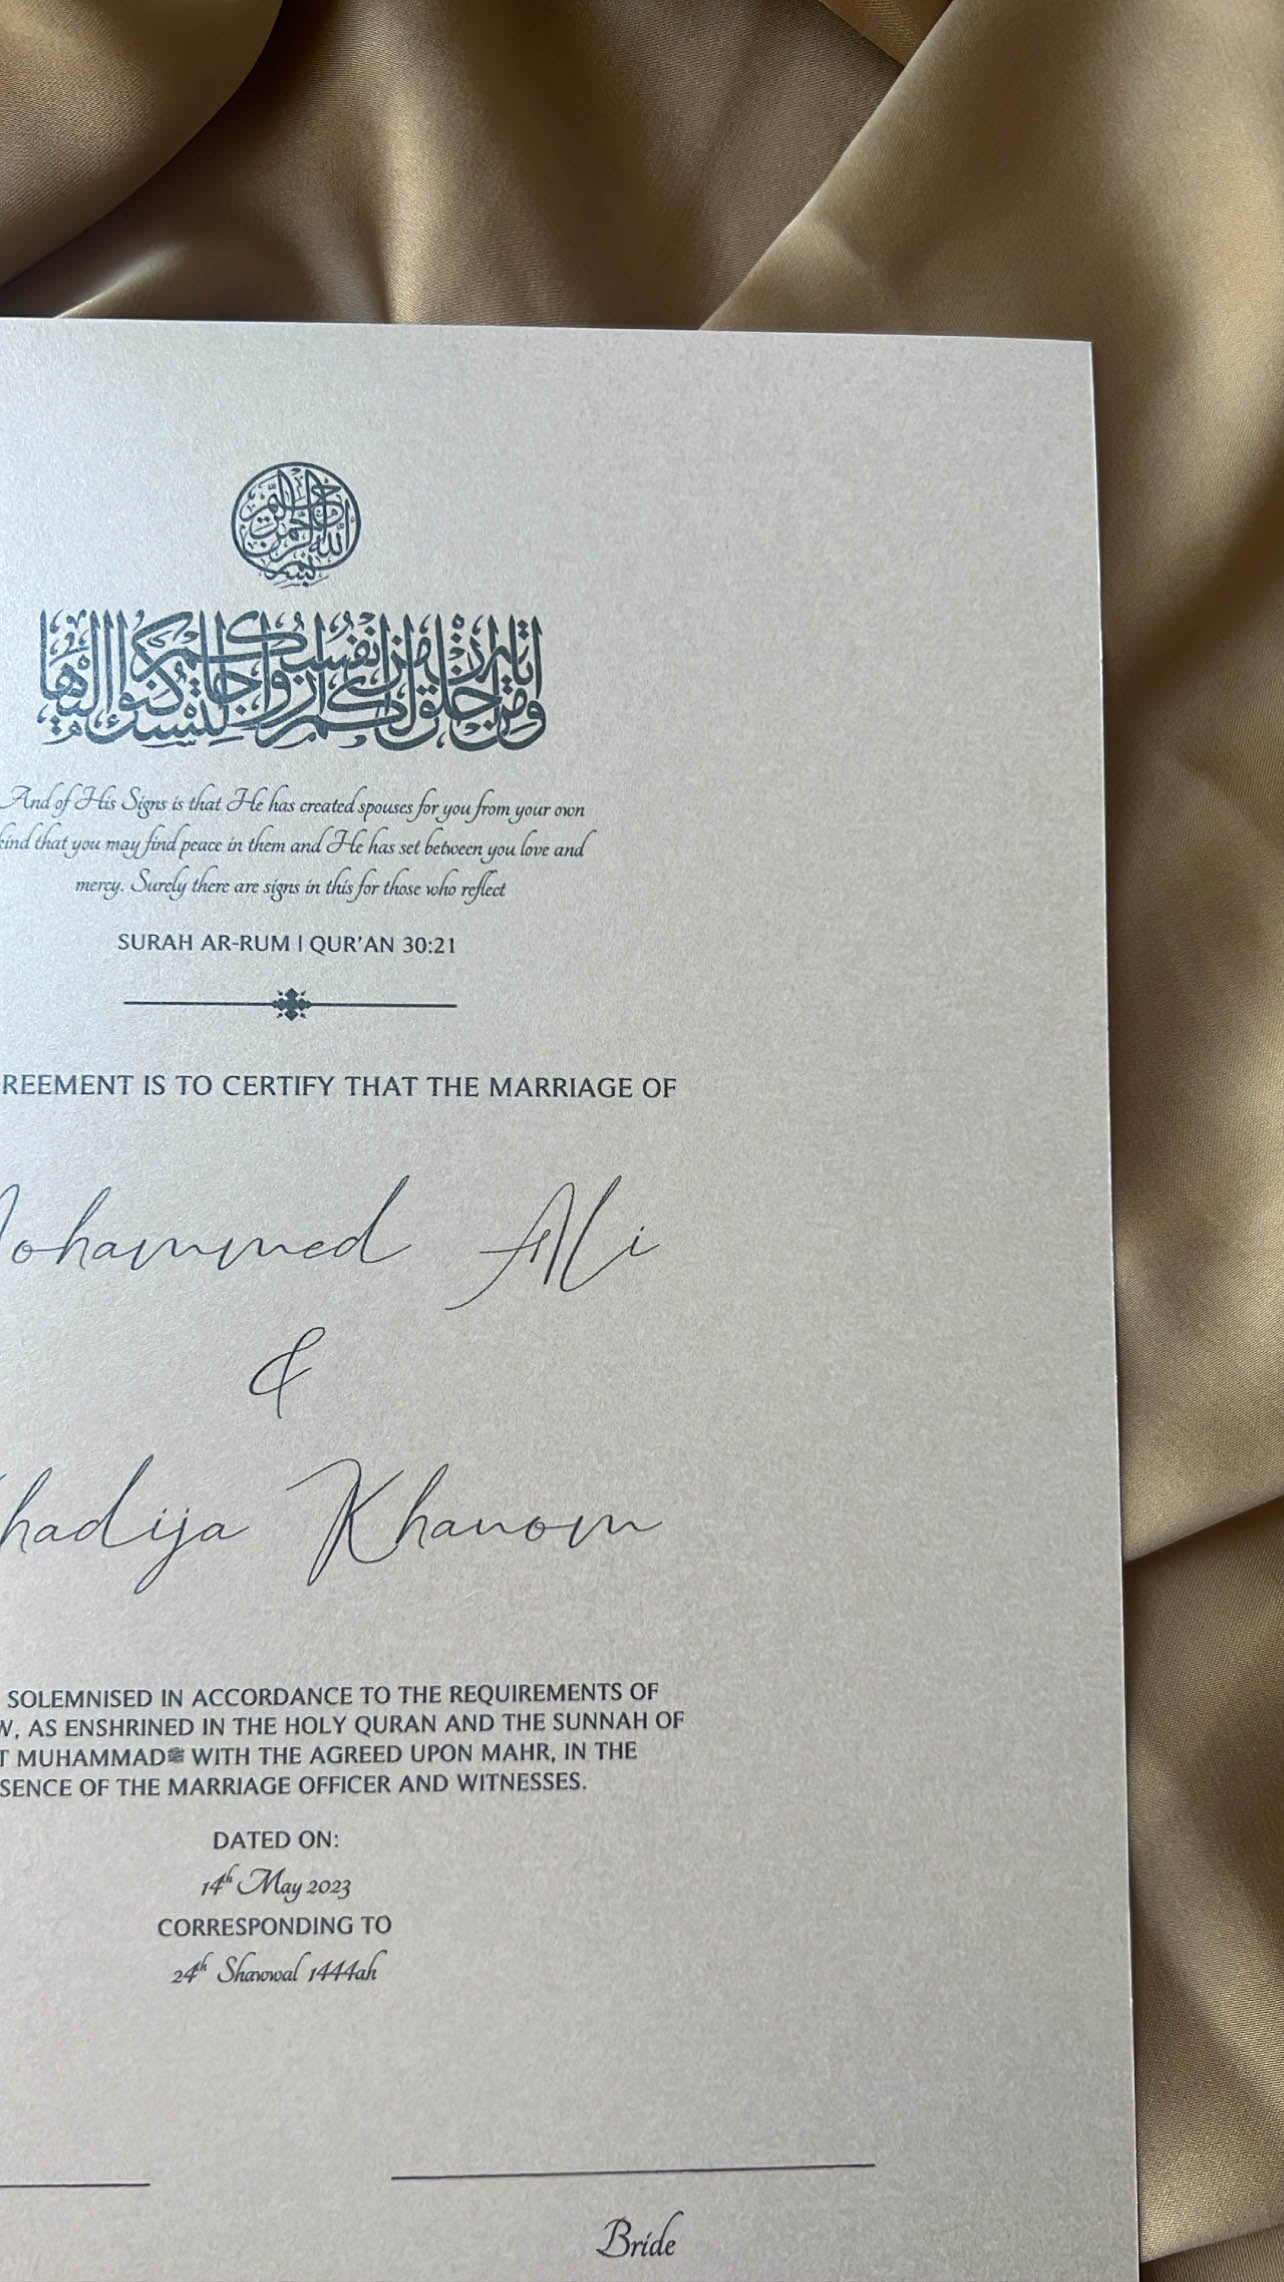 بسم الله الرحمن الرحيم
ومن اياته ان خلق لكم من انفسكم ازواجا لتسكنوا اليها
And of His Signs is that He has created spouses for you from your own
kind that you may find peace in them and He has set between you love and
mercy. Surely there are signs in this for those who reflect
SURAH AR-RUM | QUR'AN 30:21
REEMENT IS TO CERTIFY THAT THE MARRIAGE OF
Mohammed Ali
&
hadija Khanom
SOLEMNISED IN ACCORDANCE TO THE REQUIREMENTS OF
W, AS ENSHRINED IN THE HOLY QURAN AND THE SUNNAH OF
T MUHAMMADﷺ WITH THE AGREED UPON MAHR, IN THE
SENCE OF THE MARRIAGE OFFICER AND WITNESSES.
DATED ON:
14th May 2023
CORRESPONDING TO
24th Shawwal 1444ah
Bride